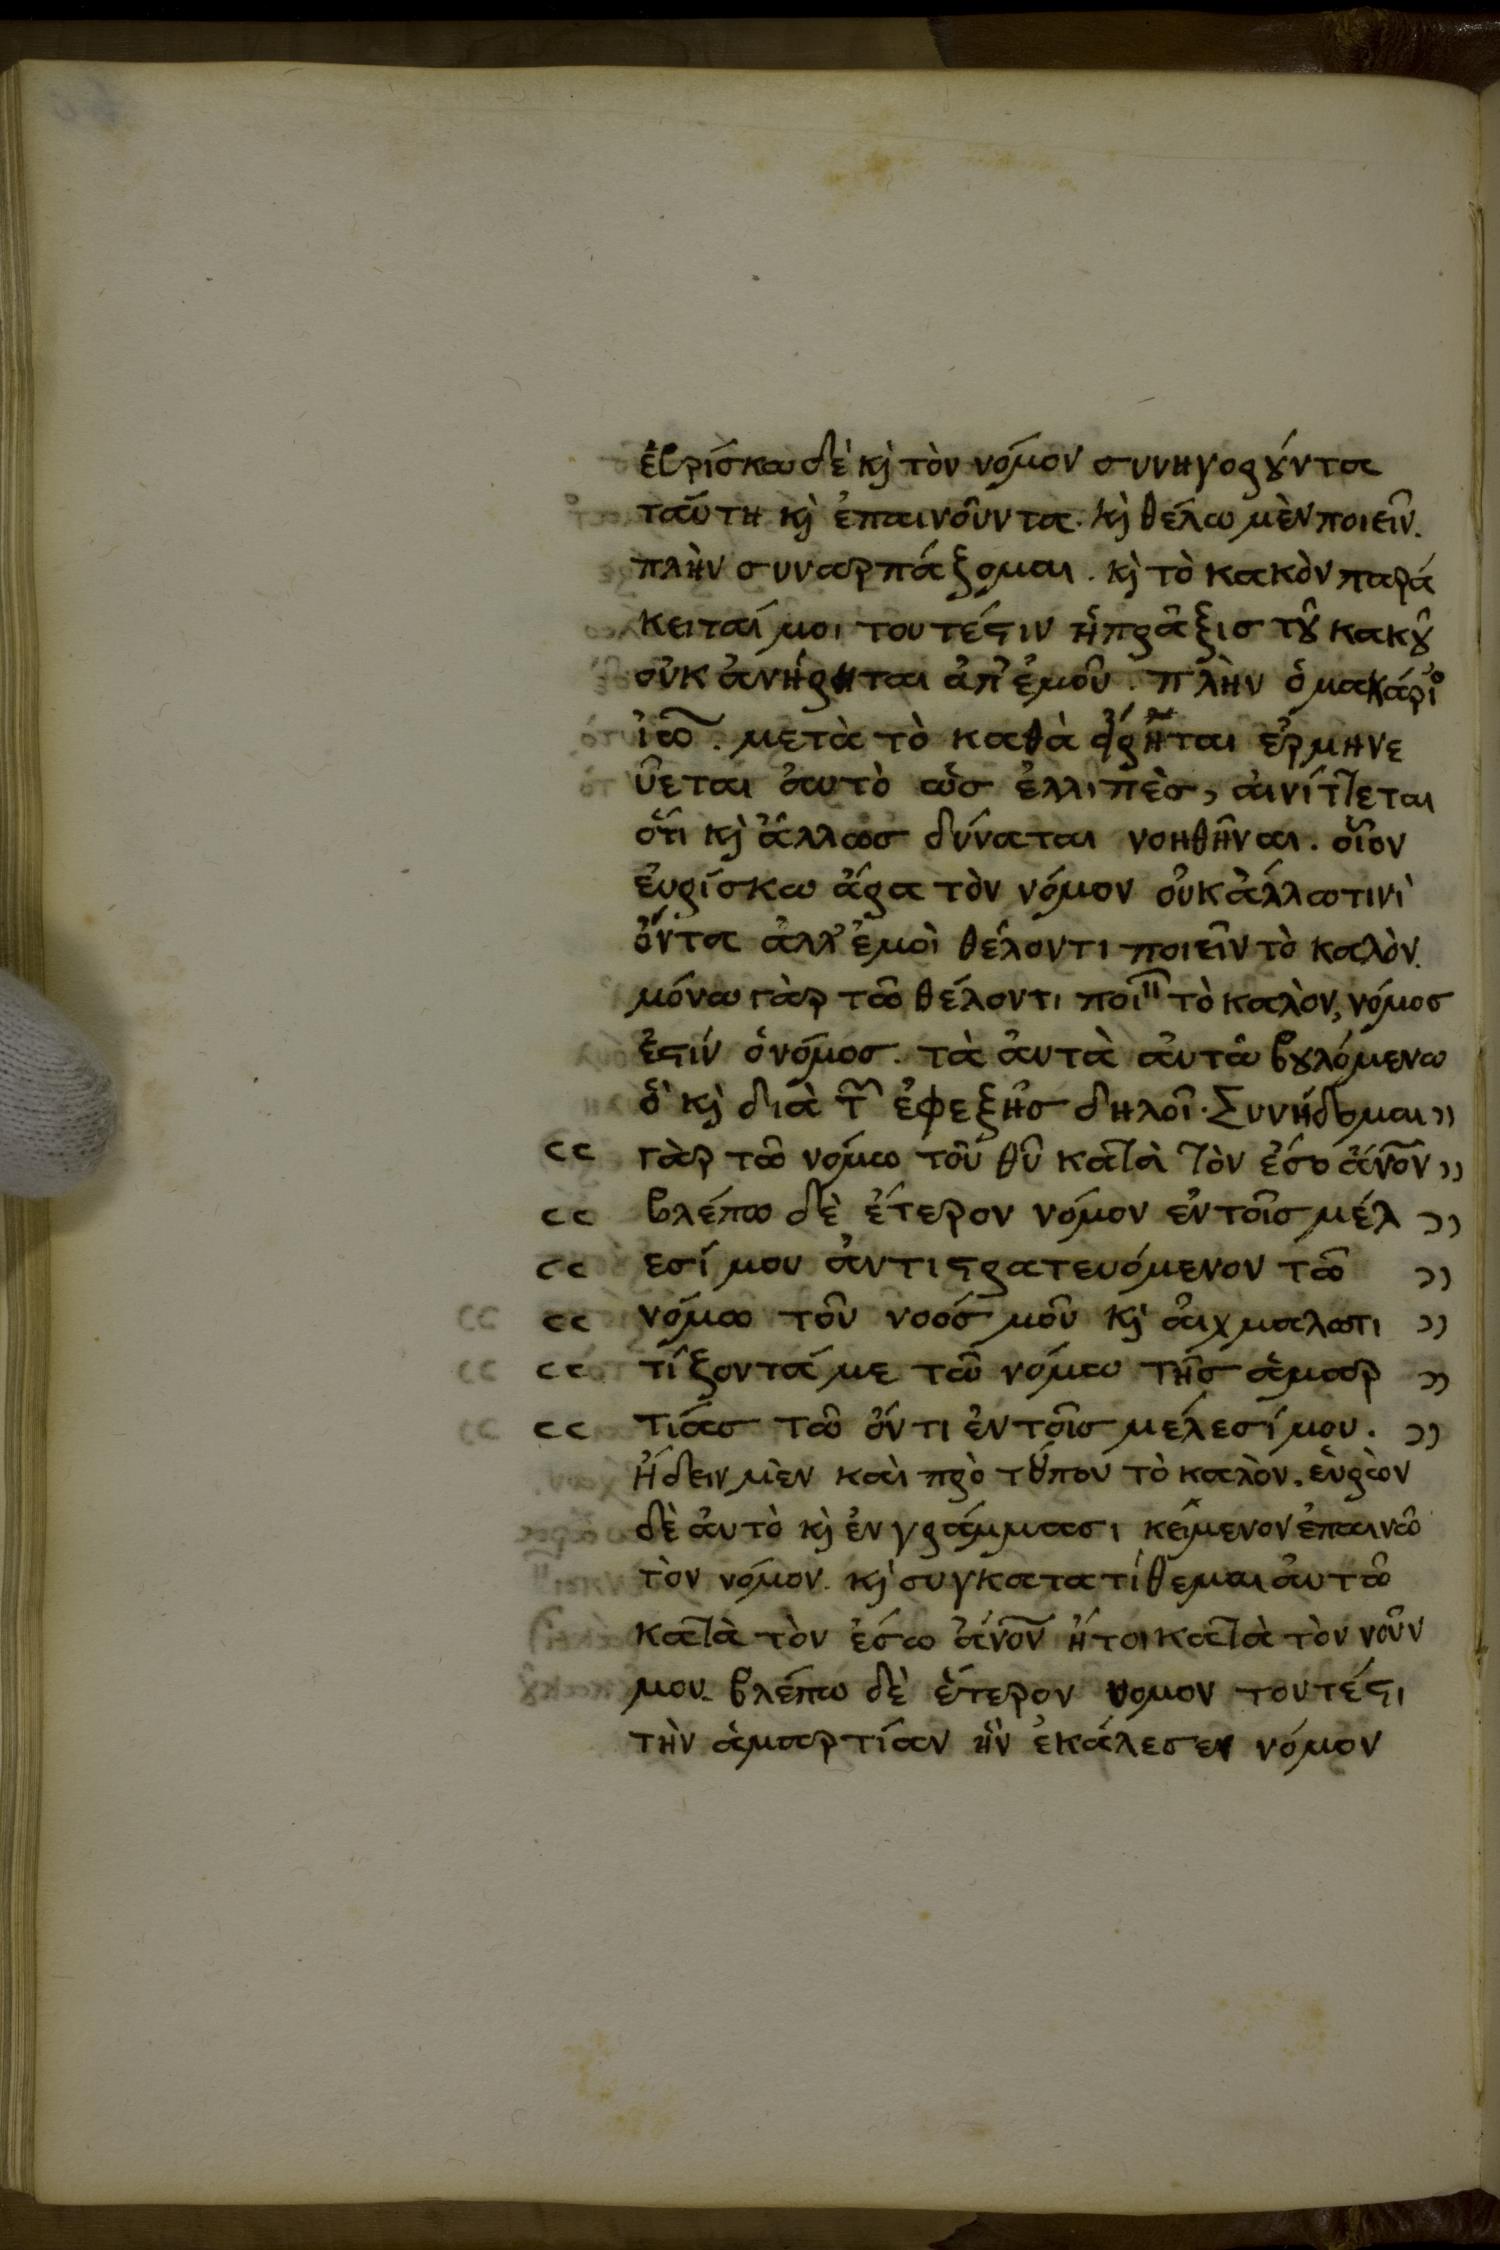 ἑυρίσκω δὲ κὶ τὸν νόμον συνηγορȣ́ντα
ταύτη κὶ ἐπαινοῦντα. κὶ θέλω μὲν ποιεῖν.
πλὴν συναρπάζομαι. κὶ τὸ κακὸν παρά
κειταί μοι τουτέϛιν ἡ πρᾶξισ τȣ͂ κακȣ͂
οὐκ ἀνήρηται ἀπ' ἐμοῦ. πλὴν ὁ μακάριο
ἰῶ. μετὰ τὸ καθὰ εἴρηται ἑρμηνε
ῦεται ἀυτὸ ὡσ ἐλλιπὲσ, ἀινίτ͂εται
ὅτι κὶ ἄλλωσ δύναται νοηθῆναι. οἷον
ἑυρίσκω ἄρα τὸν νόμον οὐκ ἄλλω τινὶ
ὄντα ἀλλ' ἐμοὶ θέλοντι ποιεῖν τὸ καλὸν.
μόνω γὰρ τῶ θέλοντι ποῖ τὸ καλὸν, νόμοσ
ἐϛίν ὁ νόμοσ. τὰ ἀυτὰ ἀυτῶ βȣλόμενω
ὃ κὶ διὰ τ͂ ἐφεξῆσ δηλοῖ. Συνήδομαι ))
(( γὰρ τῶ νόμω τοῦ θῦ κατὰ τὸν ἔσω ἄν͂ον ))
(( βλέπω δὲ ἕτερον νόμον ἐν τοῖσ μέλ ))
(( εσί μου ἀντιϛρατευόμενον τῶ ))
(( νόμω τοῦ νοόσ μοῦ κὶ ἀιχμαλωτι ))
(( τίζοντά με τῶ νόμω τῆσ ἁμαρ ))
(( τίασ τῶ ὄντι ἐν τοῖσ μέλεσί μου. ))
Ἤδειν μὲν καὶ πρὸ τȣ́που τὸ καλὸν. ἑυρὼν
δὲ ἀυτὸ κὶ ἐν γράμμασι κείμενον ἐπαινῶ
τὸν νόμον. κὶ συγκατατίθεμαι ἀυτῶ
κατὰ τὸν ἔσω ἄν͂ον ἤτοι κατὰ τὸν νοῦν
μου. βλέπω δὲ ἕτερον νομον τουτέϛι
τὴν ἁμαρτίαν ἣν ἐκάλεσεν νόμον